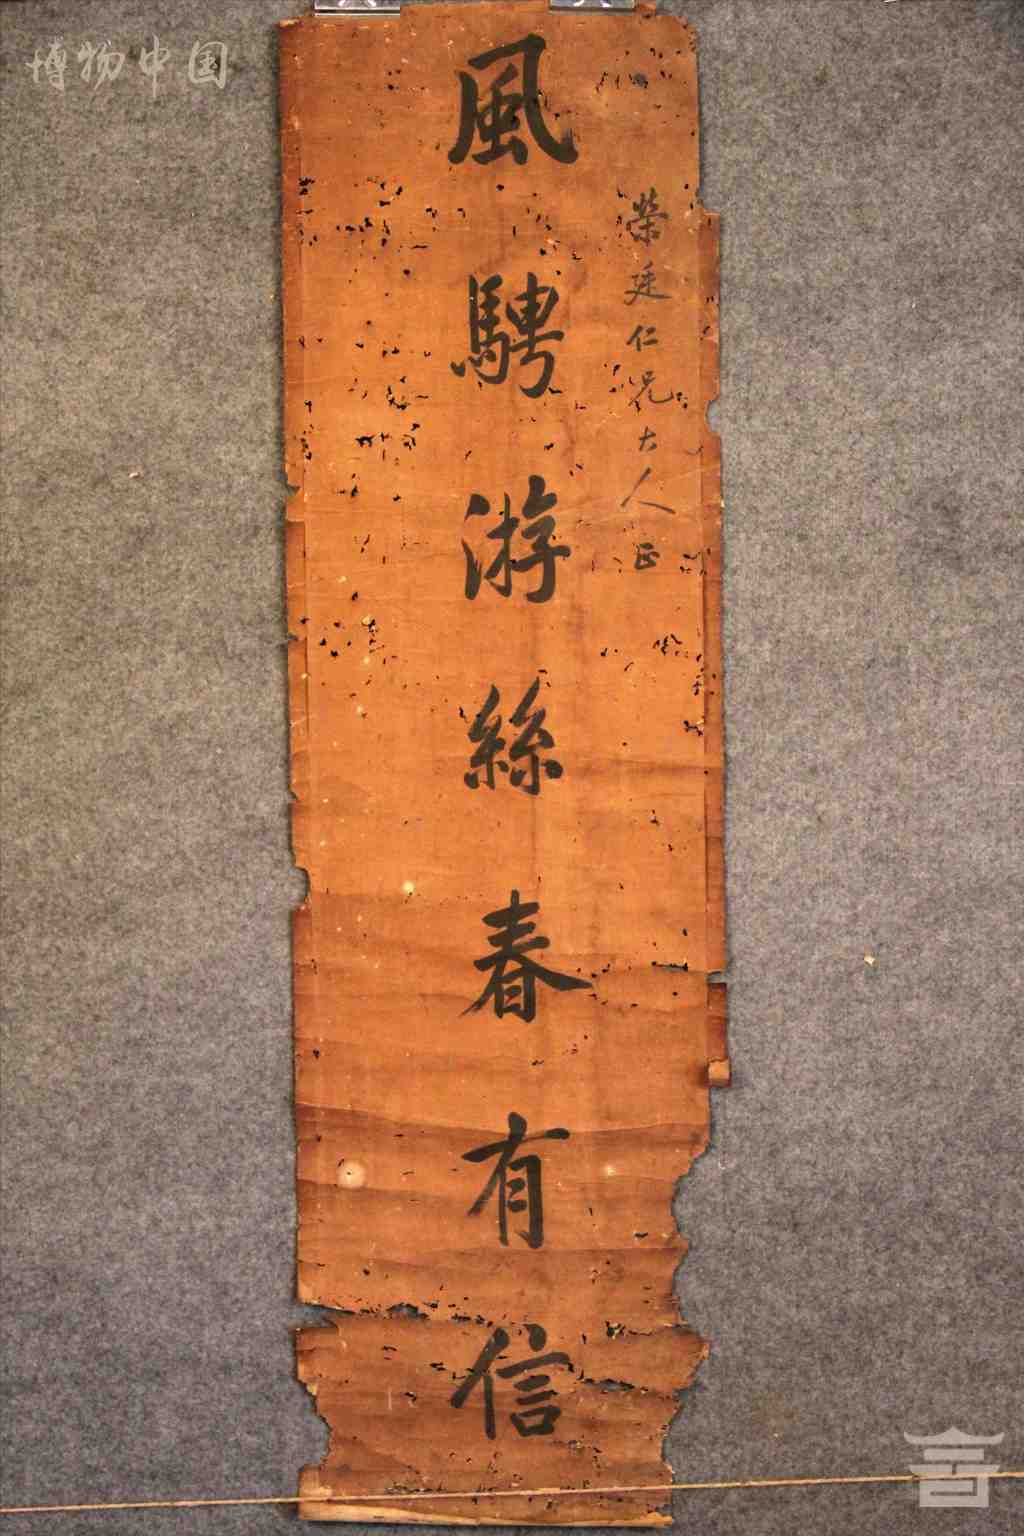 博物中国
榮廷仁兄大人正
風騁游絲春有信